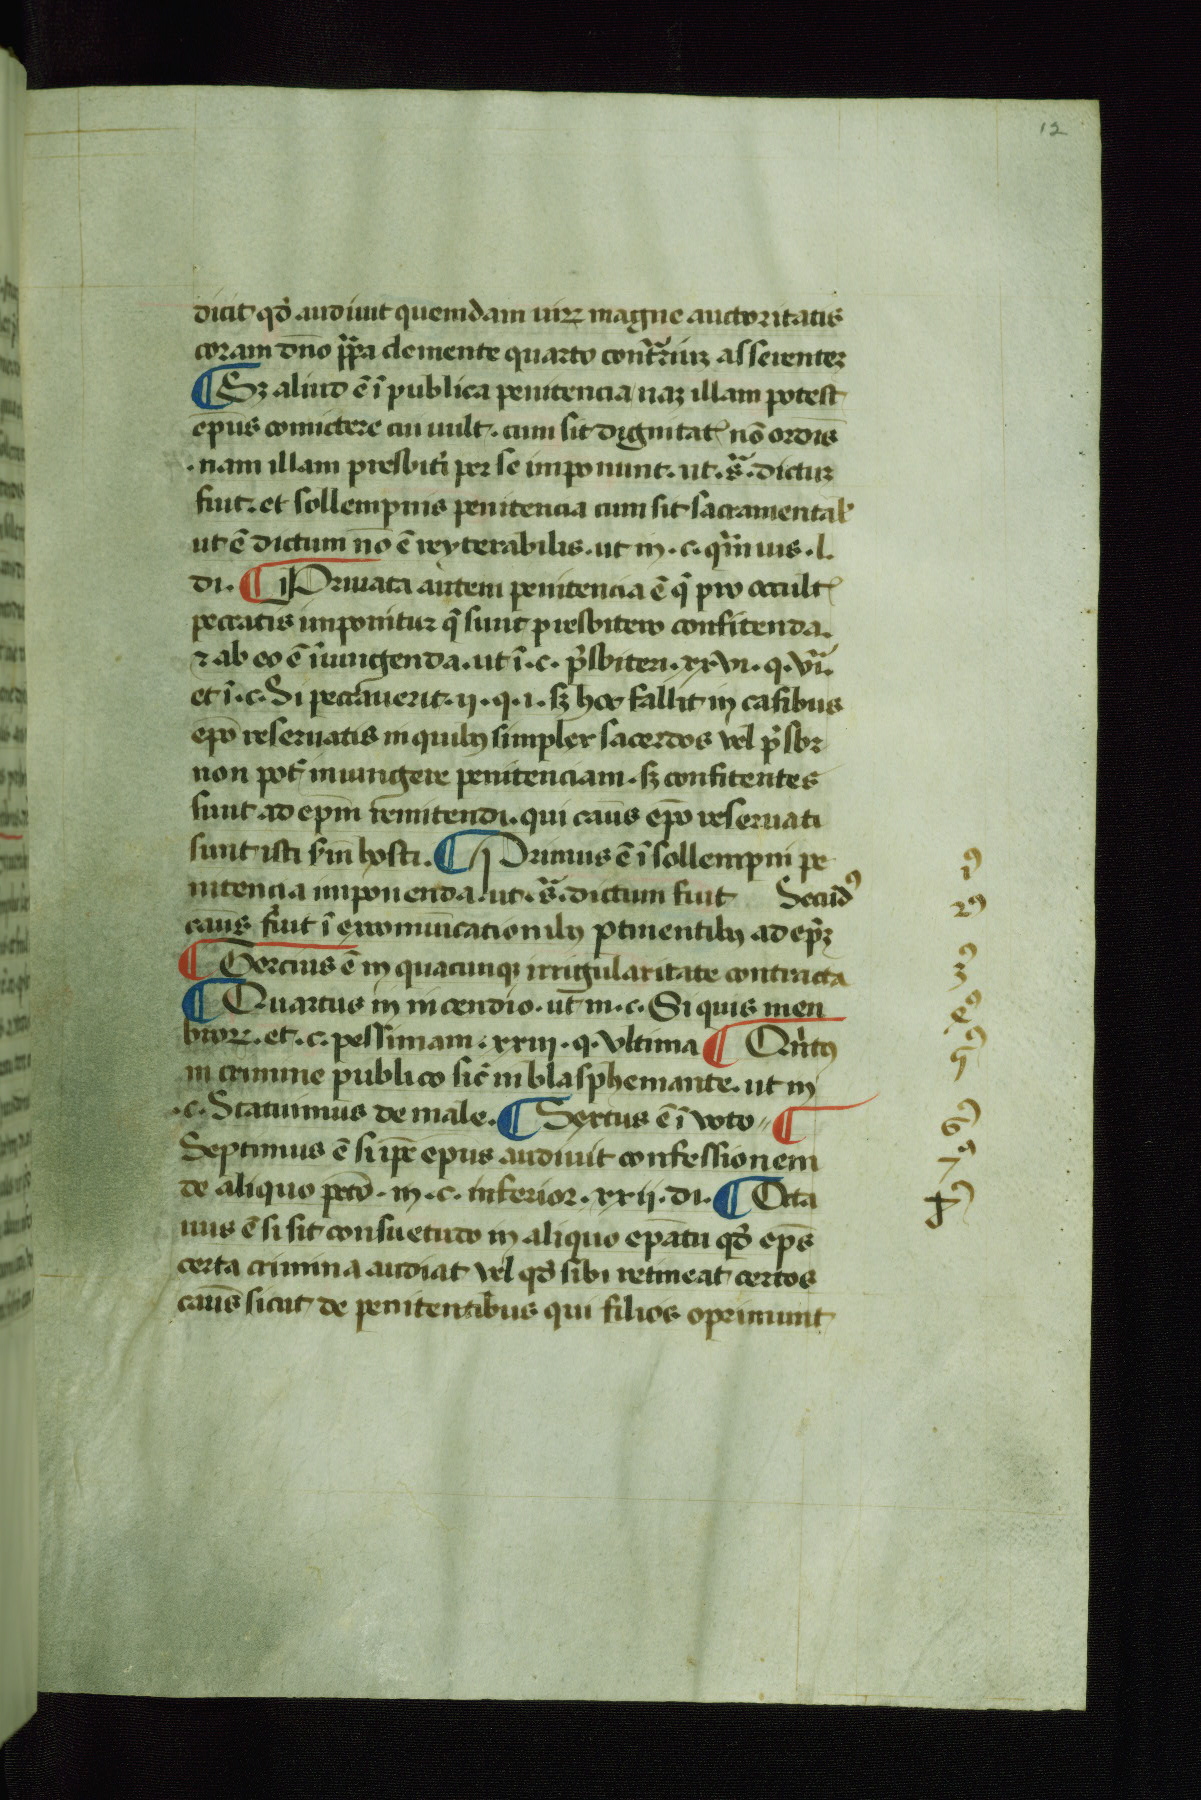 12
dicit qd̛ audiuit quemdam uiꝝ magne auctoritatis
coram dño ꝑpa clemente quarto contrariuꝫ asserentez
¶ Sꝫ aliud ē ī publica penitencia naꝫ illam potest
epūs comictere cui uult . cum sit dignitatꝭ nō ordīs
. nam illam presbitĩ per se imponunt . ut . sͣ . dictuꝫ
fuit . et sollempnis penitencia cum sit sacramental̛
ut ē dictum nō ē reyterabilis . ut in . c . qᷓmuis . l .
di . ¶ Priuata autem penitencia ē q̄ pro occultꝭ
peccatis imponitur q̄ sunt presbitero confitenda .
⁊ ab eo ē īiungenda . ut ī . c . p̄sbiteri . xxvi . q . vīͣ .
et ī . c . Si peccauerit . ii . q . i . sꝫ hoc fallit in casibus
ep̄o reseruatis in quibꝰ simplex sacerdos vel p̄sbr̄
non pot̄ iniungere penitenciam . sꝫ confitentes
sunt ad ep̄m remitendi . qui caūs ep̄o reseruati
sunt isti s̄m hosti . ¶ Primus ē ī sollempni pe
nitencia imponenda . ut . sͣ . dictum fuit Secūdꝰ
caūs fuit ī excomūicationibꝰ ꝑtinentibꝰ ad ep̄ꝫ
¶ Tercius ē in quacunqꝫ irrigularitate contracta
¶ Quartus in incendio . ut̄ in . c . Si quis mem
broꝝ . et . c . pessimam . xxiii . q . vltima ¶ Qn̄tꝰ
in crimine publico sic̄ in blasphemante . ut in
. c . Statuimus de male . ¶ Sextus ē ī voto ¶
Septimus ē si ip̄e epūs audiuit confessionem
de aliquo pctō . in . c . inferior . xxii . di . ¶ Octa
uus ē si sit consuetudo in aliquo ep̄atu qd̛ ep̄s
certa crimina audiat vel qd̛ sibi retineat certos
caūs sicut de penitentibus qui filios oprimunt
1ꝰ
2ꝰ
3ꝰ
4ꝰ
5ꝰ
6ꝰ
7ꝰ
8ꝰ